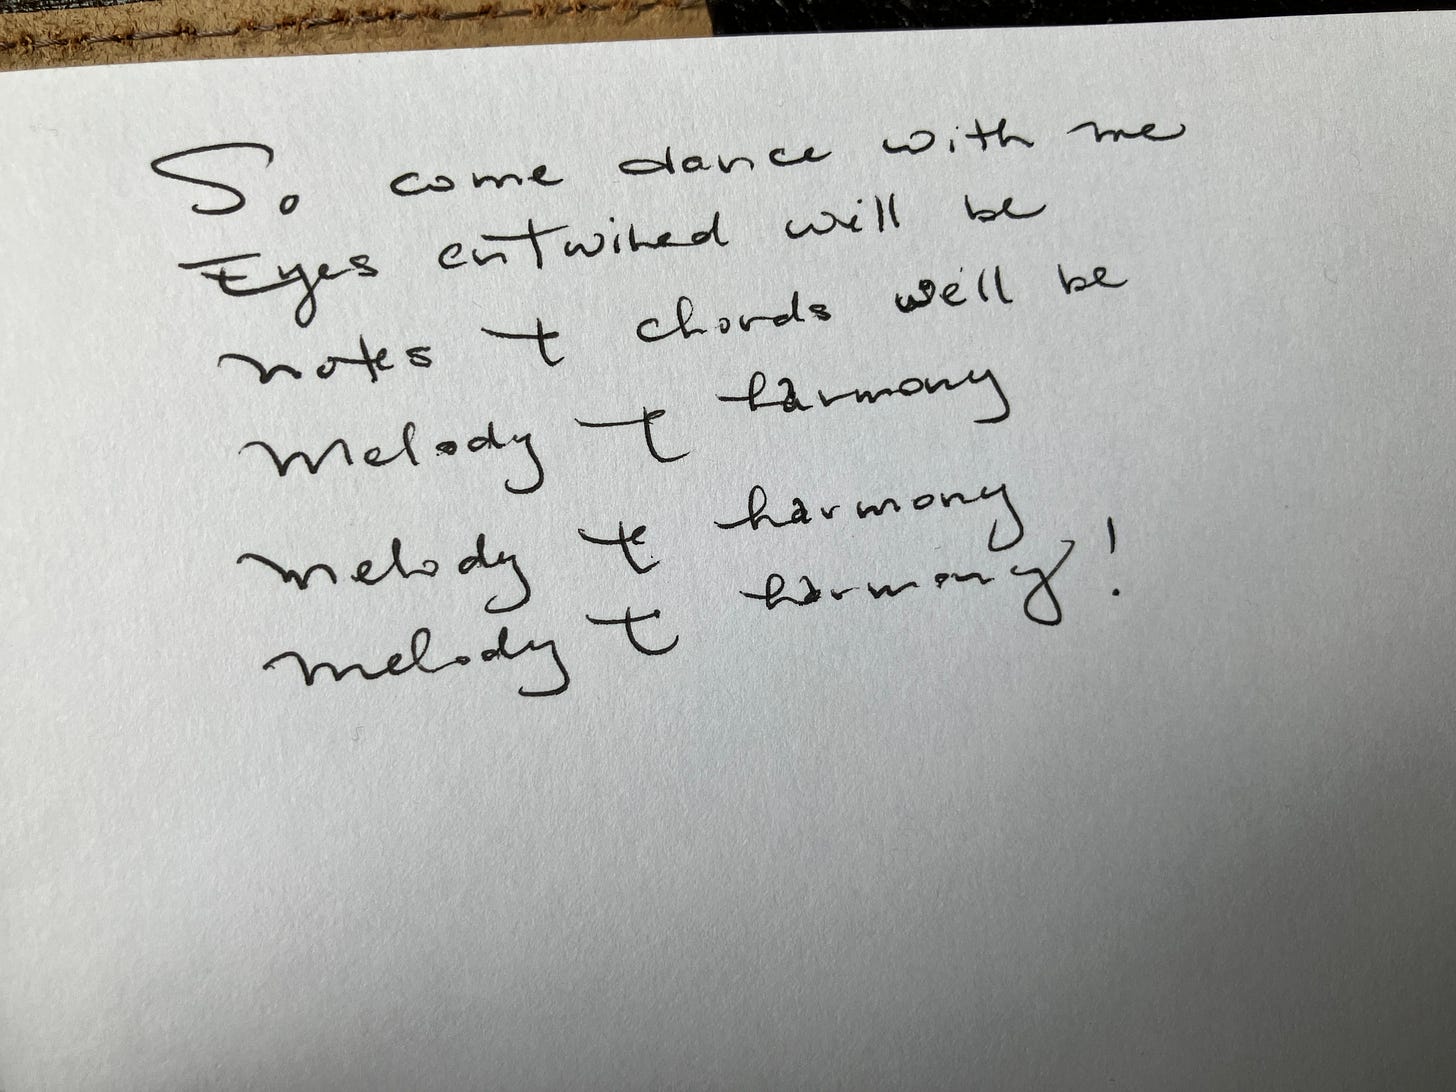 So come dance with me
Eyes entwined will be
Notes + chords we'll be
Melody + harmony
Melody + harmony
Melody + harmony!